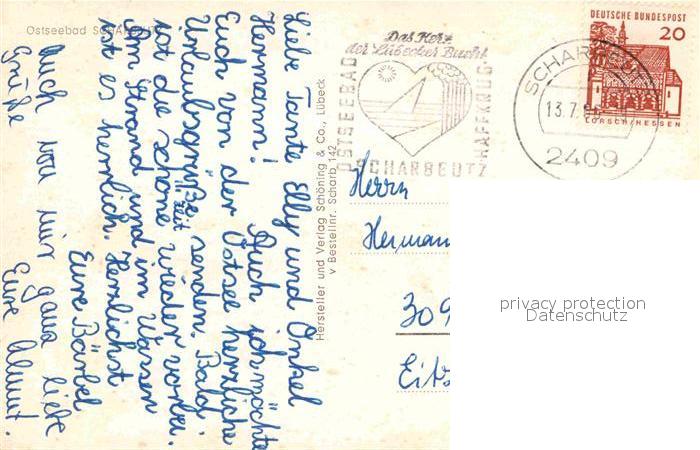 Ostseebad SCHARBEUTZ
Liebe Tante Elly und Onkel
Hermann! Auch ich möchte
Euch von der Ostsee herzliche
Urlaubsgrüße senden. Bald
ist die schöne Zeit wieder vorbei.
Am Strand und im Wasser
ist es herrlich. Herzlichst
Eure Bärbel
Auch von mir ganz liebe
Grüße Eure Almut.
Hersteller und Verlag Schöning & Co., Lübeck
v Bestellnr. Scharb 142
Das Herz
der Lübecker Bucht
OSTSEEBAD
HAFFKRUG
SCHARBEUTZ
SCHARBEUTZ
13.7.
2409
DEUTSCHE BUNDESPOST
20
LORSCH/HESSEN
Herrn
Herman
309
Eits
privacy protection
Datenschutz